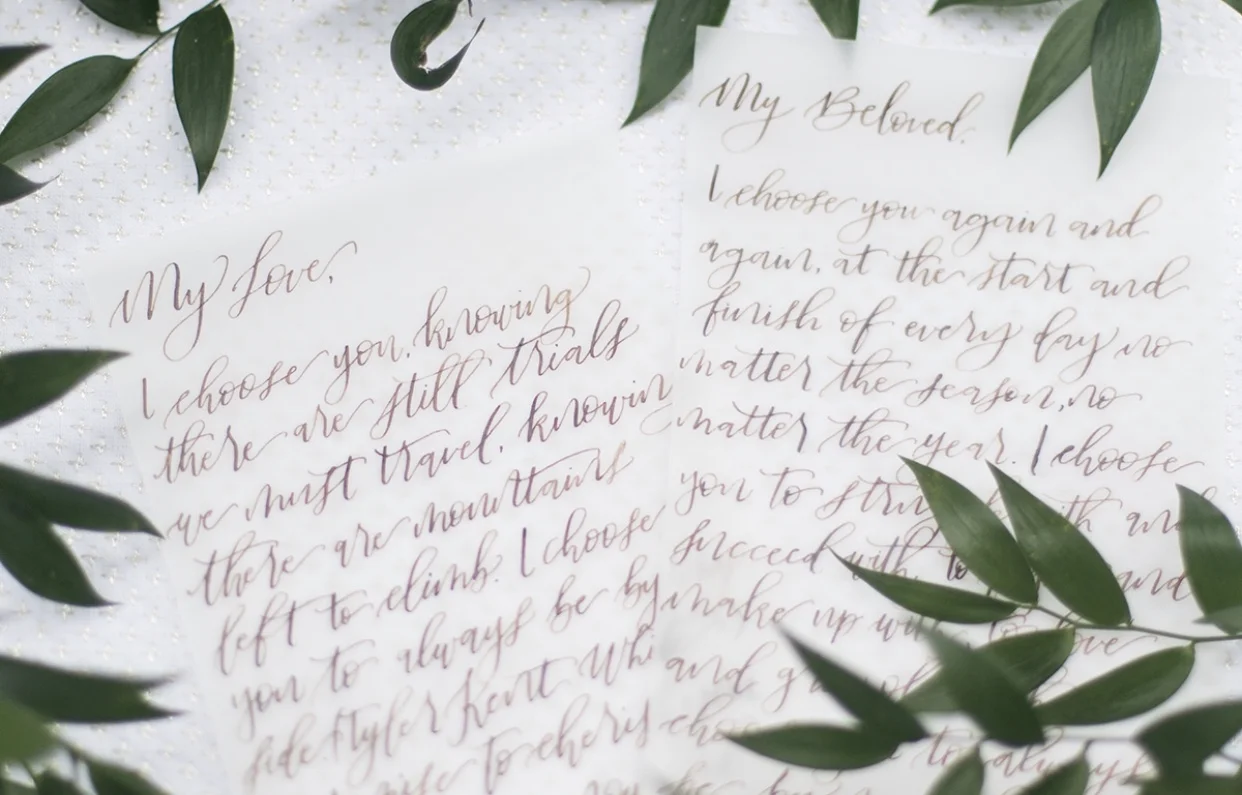 My Love,
I choose you, knowing
there are still trials
we must travel, knowin
there are mountains
left to climb. I choose
you to always be by
side. Tyler Kent Whi
to cheris
My Beloved,
I choose you again and
again, at the start and
finish of every day no
matter the season, no
matter the year. I choose
you to with and
succeed with, to and
make up with, to love
and
to always